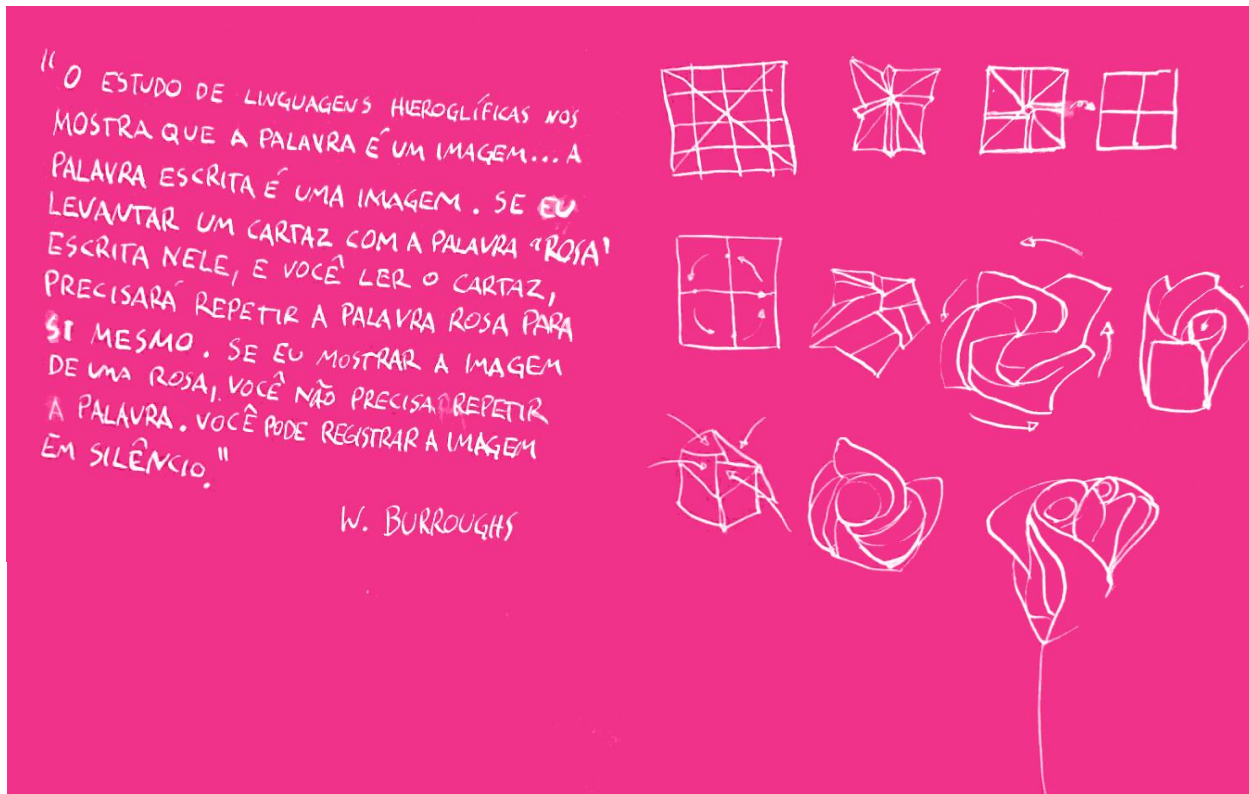 "O ESTUDO DE LINGUAGENS HIEROGLÍFICAS NOS
MOSTRA QUE A PALAVRA É UM IMAGEM... A
PALAVRA ESCRITA É UMA IMAGEM. SE EU
LEVANTAR UM CARTAZ COM A PALAVRA "ROSA"
ESCRITA NELE, E VOCÊ LER O CARTAZ,
PRECISARÁ REPETIR A PALAVRA ROSA PARA
SI MESMO. SE EU MOSTRAR A IMAGEM
DE UMA ROSA, VOCÊ NÃO PRECISA REPETIR
A PALAVRA. VOCÊ PODE REGISTRAR A IMAGEM
EM SILÊNCIO."
W. BURROUGHS